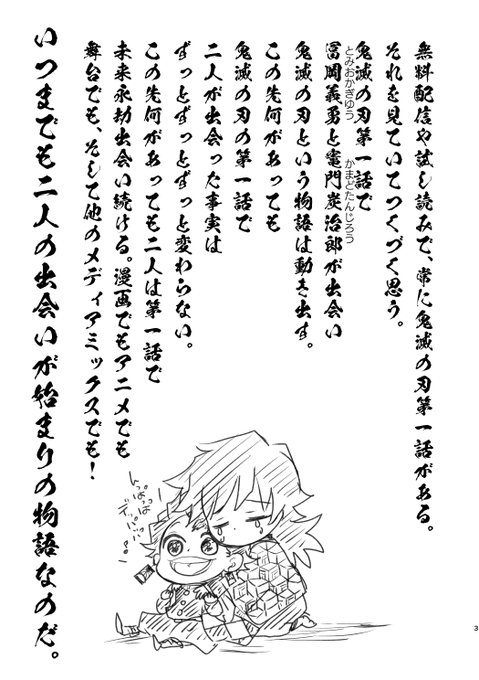 無料配信や試し読みで、常に鬼滅の刃第一話がある。
それを見ていてつくづく思う。
鬼滅の刃第一話で
とみおかぎゆう
かまどたんじろう
冨岡義勇と竈門炭治郎が出会い
鬼滅の刃という物語は動き出す。
この先何があっても
鬼滅の刃の第一話で
二人が出会った事実は
ずっとずっと変わらない。
この先何があっても二人は第一話で
未来永劫出会い続ける。漫画でもアニメでも
舞台でも、そして他のメディアミックスでも!
いつまでも二人の出会いが始まりの物語なのだ。
3